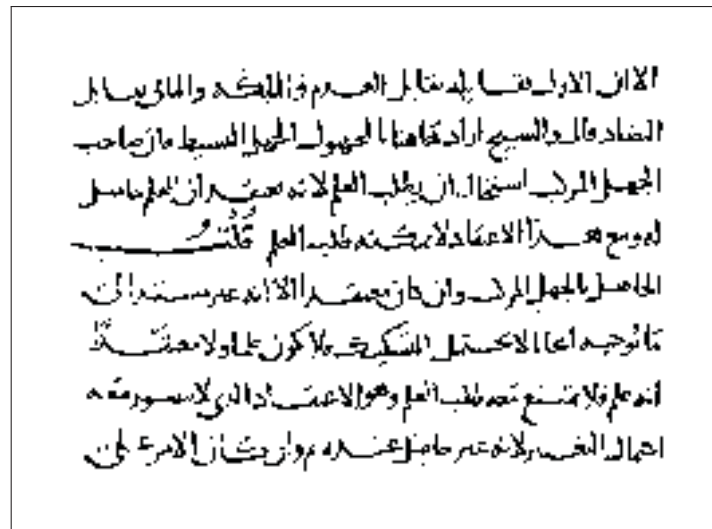 الا ان الاول يقابله تقابل العدم والملكة والثاني يقابل
التضاد قال والشيخ اراد هاهنا بالجهول الجهل البسيط فان صاحب
الجهل المركب استحال ان يطلب العلم لانه يعتقد ان العلم حاصل
له ومع هذا الاعتقاد لا يمكنه طلب العلم قلت
الجاهل بالجهل المركب وان كان معتقدا الا انه غير مستند الى
ما توجبه لا يحتمل التشكيك فلا يكون علما ولا معتقدا
انه علم فلا يمتنع معه طلب العلم وهو الاعتقاد الذي لا يتصور معه
احتمال النقيض لانه غير حاصل عنده وان كان الامر على